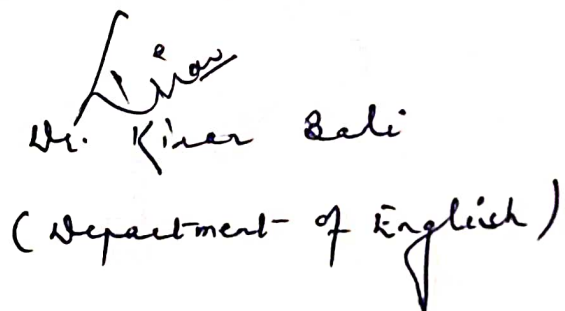 Kiran
Dr. Kiran Bali
(Department of English)